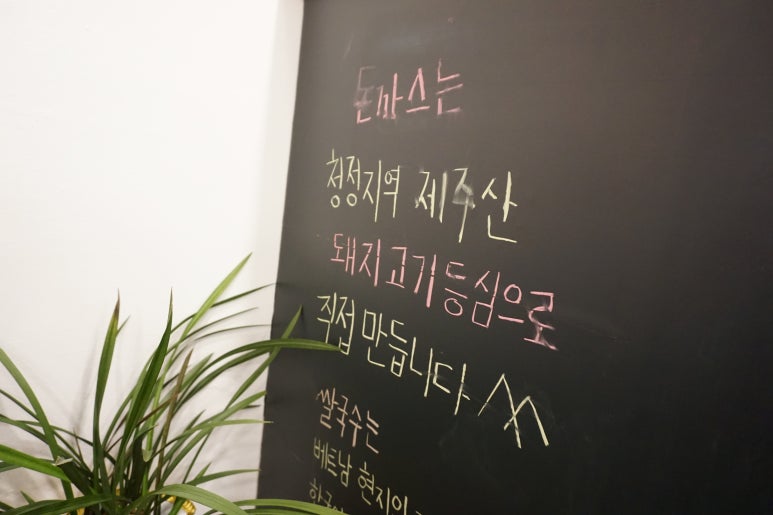 돈까스는
청정지역 제주산
돼지고기등심으로
직접 만듭니다 ^^
쌀국수는
베트남 현지인